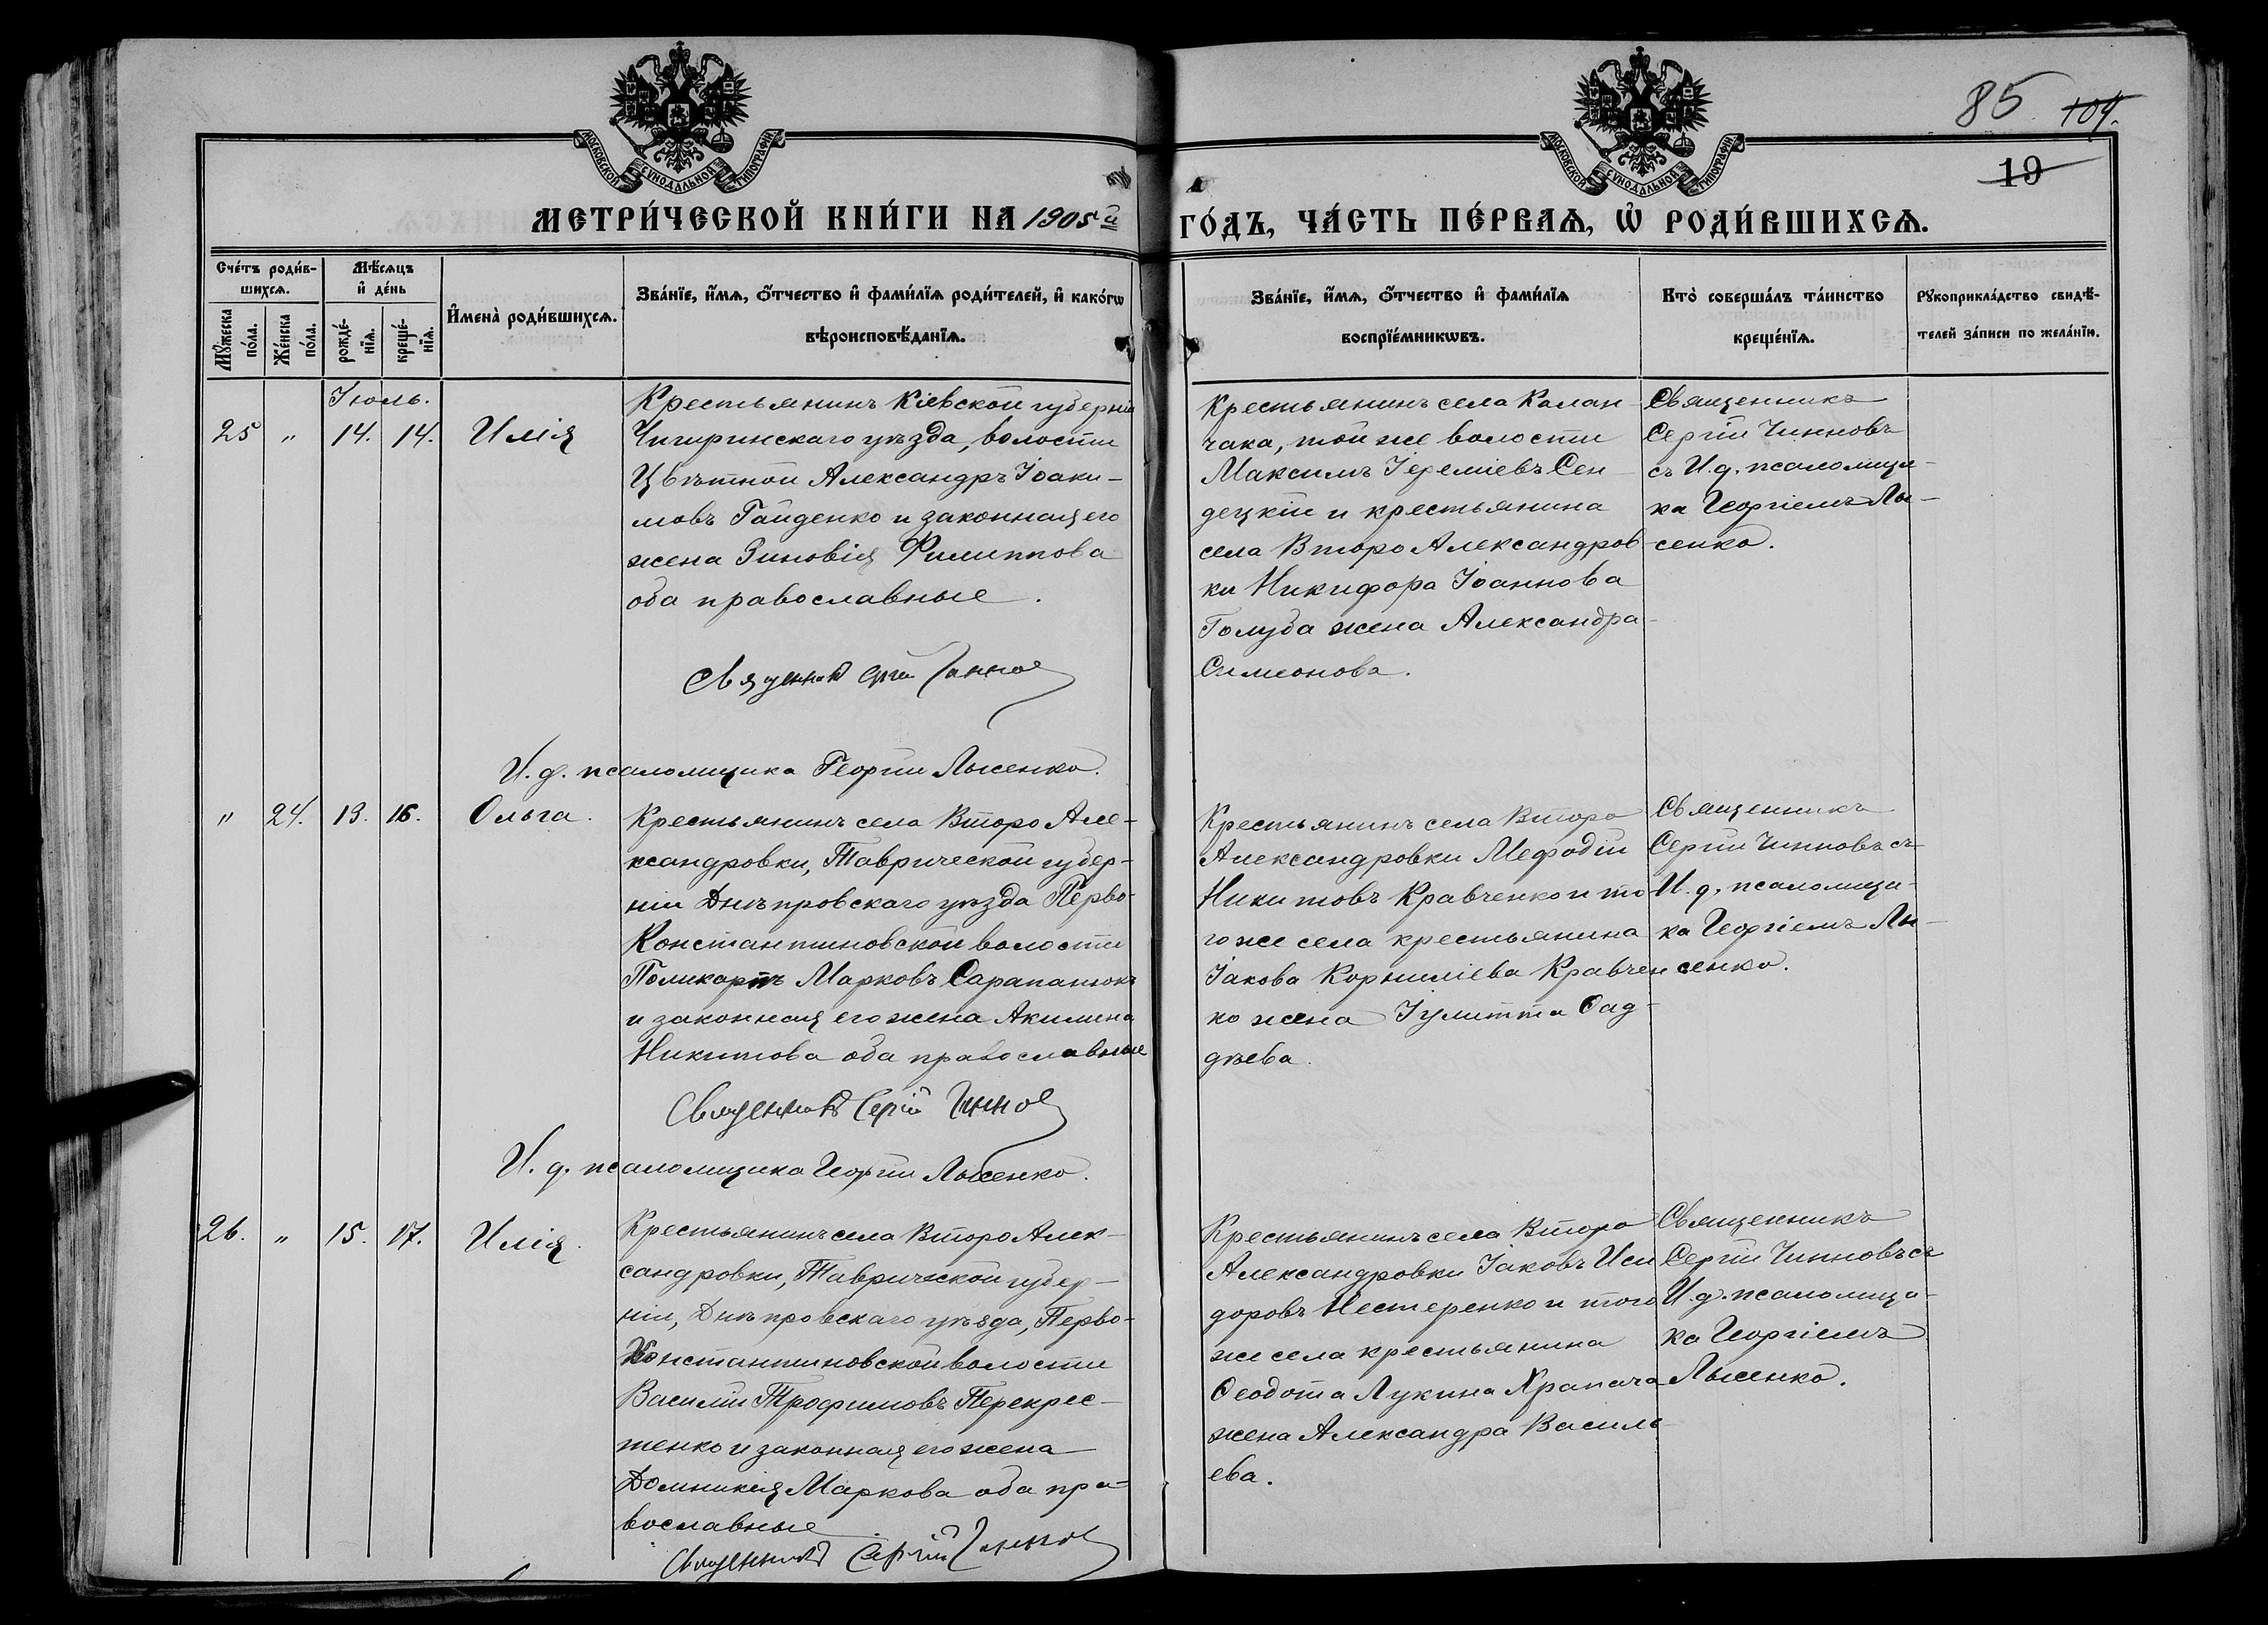 85 104.
19
МОСКОВСКОЙ СѴНОДАЛЬНОЙ ТИПОГРАФІИ
МОСКОВСКОЙ СѴНОДАЛЬНОЙ ТИПОГРАФІИ
МЕТРИ́ЧЕСКОЙ КНИ́ГИ НА 1905й ГО́ДЪ, ЧА́СТЬ ПЕ́РВАѦ, Ѡ҆ РОДИ́ВШИХСѦ.
Сче́тъ роди́в-
шихсѧ.
Мꙋ́жеска
по́ла.
Же́нска
по́ла.
Мѣ́сѧцъ
и҆ де́нь
рожде́-
нїѧ.
креще́-
нїѧ.
И҆мена̀ роди́вшихсѧ.
Зва́нїе, и҆́мѧ, ѻ҆́тчество и҆ фами́лїѧ роди́телей, и҆ како́гѡ
вѣроисповѣ́данїѧ.
Зва́нїе, и҆́мѧ, ѻ҆́тчество и҆ фами́лїѧ
воспрїе́мникѡвъ.
Кто̀ соверша́лъ та́инство
креще́нїѧ.
Рꙋкоприкла́дство свидѣ́-
телей за́писи по жела́нїю.
Іюль.
25 " 14. 14. Илія
Крестьянинъ Кіевской губерніи
Чигиринскаго уѣзда, волости
Цвѣтной Александръ Іоаки-
мовъ Гайденко и законная его
жена Зиновія Филиппова
оба православные.
Священникъ Сергій Чинновъ
И. д. псаломщика Георгій Лысенко.
Крестьянинъ села Калан-
чака, той же волости
Максимъ Іереміевъ Сен-
децкій и крестьянина
села Второ Александров-
ки Никифора Іоаннова
Голуба жена Александра
Симеонова.
Священникъ
Сергій Чинновъ
съ И. д. псаломщи-
ка Георгіемъ Лы-
сенко.
" 24. 13. 16. Ольга.
Крестьянинъ села Второ Але-
ксандровки, Таврической губер-
ніи Днѣпровскаго уѣзда Перво-
Константиновской волости
Поликарпъ Марковъ Сарапанюкъ
и законная его жена Акилина
Никитова оба православные
Священникъ Сергій Чинновъ
И. д. псаломщика Георгій Лысенко.
Крестьянинъ села Второ
Александровки Мефодій
Никитовъ Кравченко и то-
го же села крестьянина
Іакова Корниліева Кравчен
ко жена Іулитта Фад-
дѣева.
Священникъ
Сергій Чинновъ съ
И. д. псаломщи-
ка Георгіемъ Лы-
сенко.
26. " 15. 17. Илія.
Крестьянинъ села Второ Алек-
сандровки, Таврической губер-
ніи, Днѣпровскаго уѣзда, Перво-
Константиновской волости
Василій Трофимовъ Перекрес-
тенко и законная его жена
Домникія Маркова оба пра-
вославные
Священникъ Сергій Чинновъ
Крестьянинъ села Второ
Александровки Іаковъ Иси
доровъ Нестеренко и того
же села крестьянина
Ѳеодота Лукина Храпача
жена Александра Василь
ева.
Священникъ
Сергій Чинновъ съ
И. д. псаломщи-
ка Георгіемъ
Лысенко.